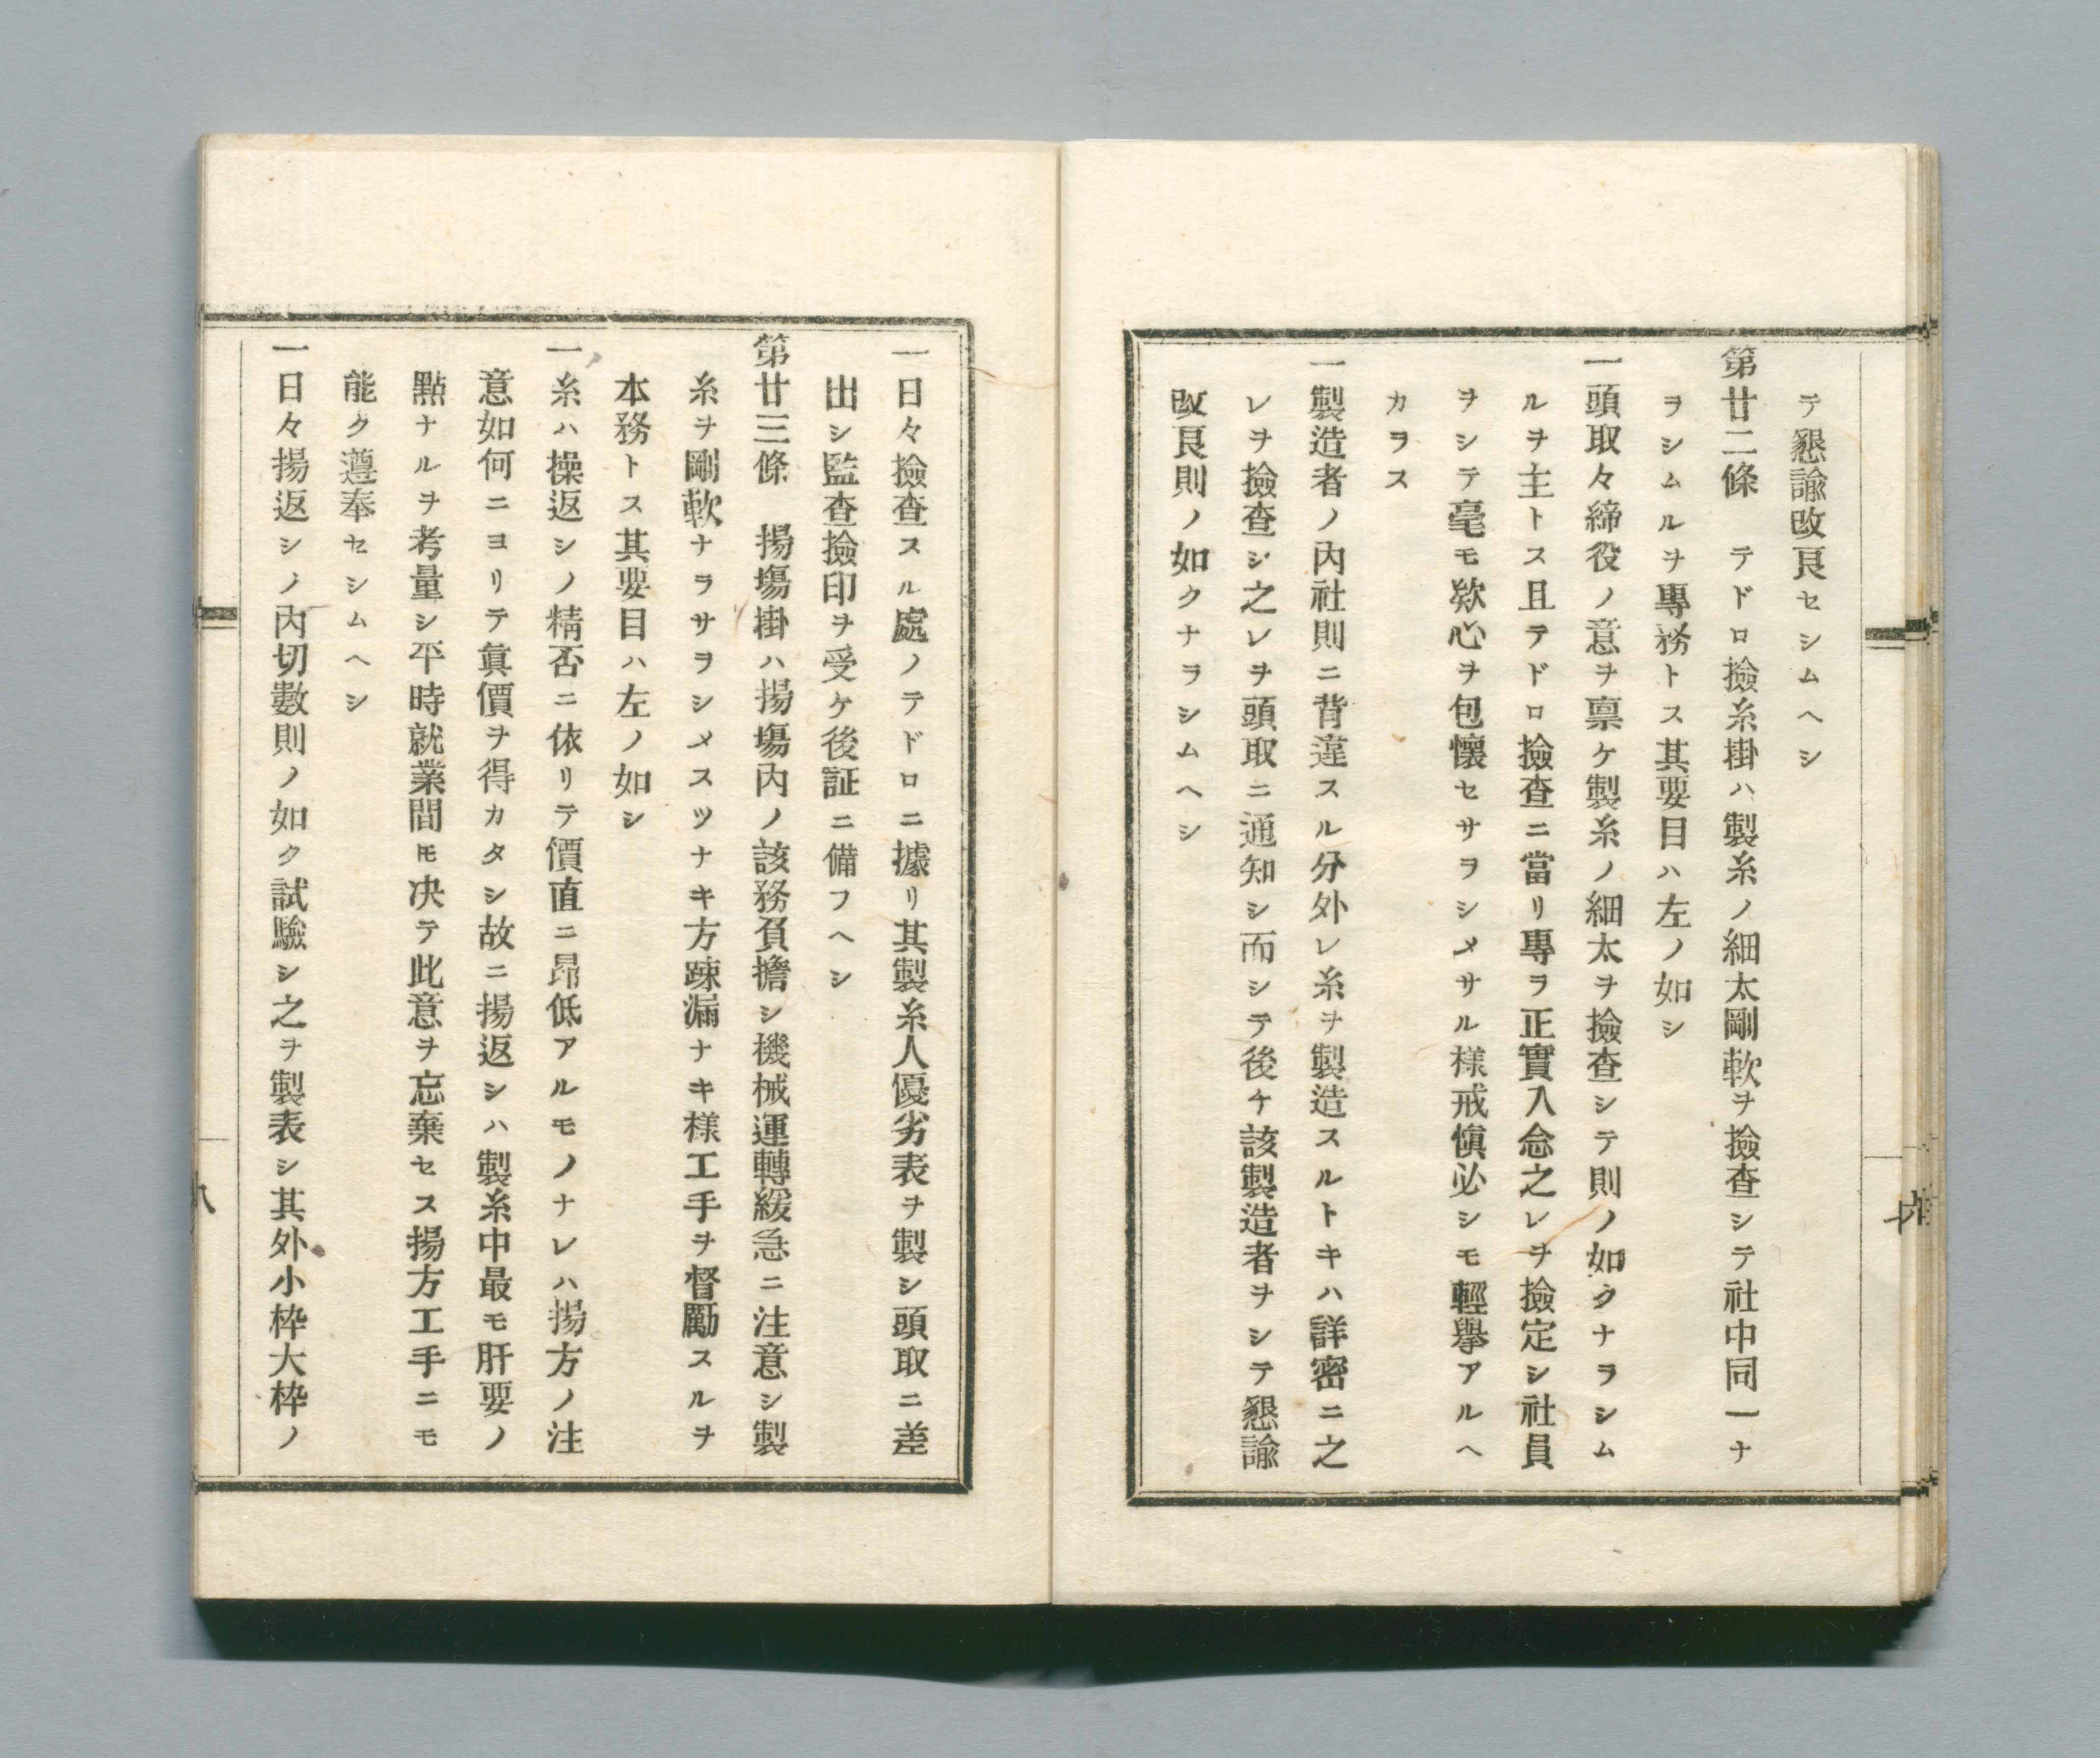 テ懇諭改良セシムヘシ
第廿二條　テドロ撿糸掛ハ製糸ノ細太剛軟ヲ撿査シテ社中同一ナ
ヲシムルヲ專務トス其要目ハ左ノ如シ
一頭取々締役ノ意ヲ禀ケ製糸ノ細太ヲ撿査シテ則ノ如クナラシム
ルヲ主トス且テドロ撿査ニ當リ專ラ正實入念之レヲ撿定シ社員
ヲシテ毫モ欺心ヲ包懷セサヲシメサル様戒愼必シモ輕擧アルヘ
カヲス
一製造者ノ內社則ニ背違スル分外レ糸ヲ製造スルトキハ詳密ニ之
レヲ撿査シ之レヲ頭取ニ通知シ而シテ後ケ該製造者ヲシテ懇諭
改良則ノ如クナラシムヘシ
一日々撿査スル處ノテドロニ據リ其製糸人優劣表ヲ製シ頭取ニ差
出シ監査撿印ヲ受ケ後証ニ備フヘシ
第廿三條　揚塲掛ハ揚塲內ノ該務負擔シ機械運轉緩急ニ注意シ製
糸ヲ剛軟ナラサヲシメスツナキ方踈漏ナキ様工手ヲ督勵スルヲ
本務トス其要目ハ左ノ如シ
一糸ハ操返シノ精否ニ依リテ價直ニ昂低アルモノナレハ揚方ノ注
意如何ニヨリテ眞價ヲ得カタシ故ニ揚返シハ製糸中最モ肝要ノ
點ナルヲ考量シ平時就業間モ决テ此意ヲ忘棄セス揚方工手ニモ
能ク遵奉セシムヘシ
一日々揚返シノ內切數則ノ如ク試驗シ之ヲ製表シ其外小枠大枠ノ
八